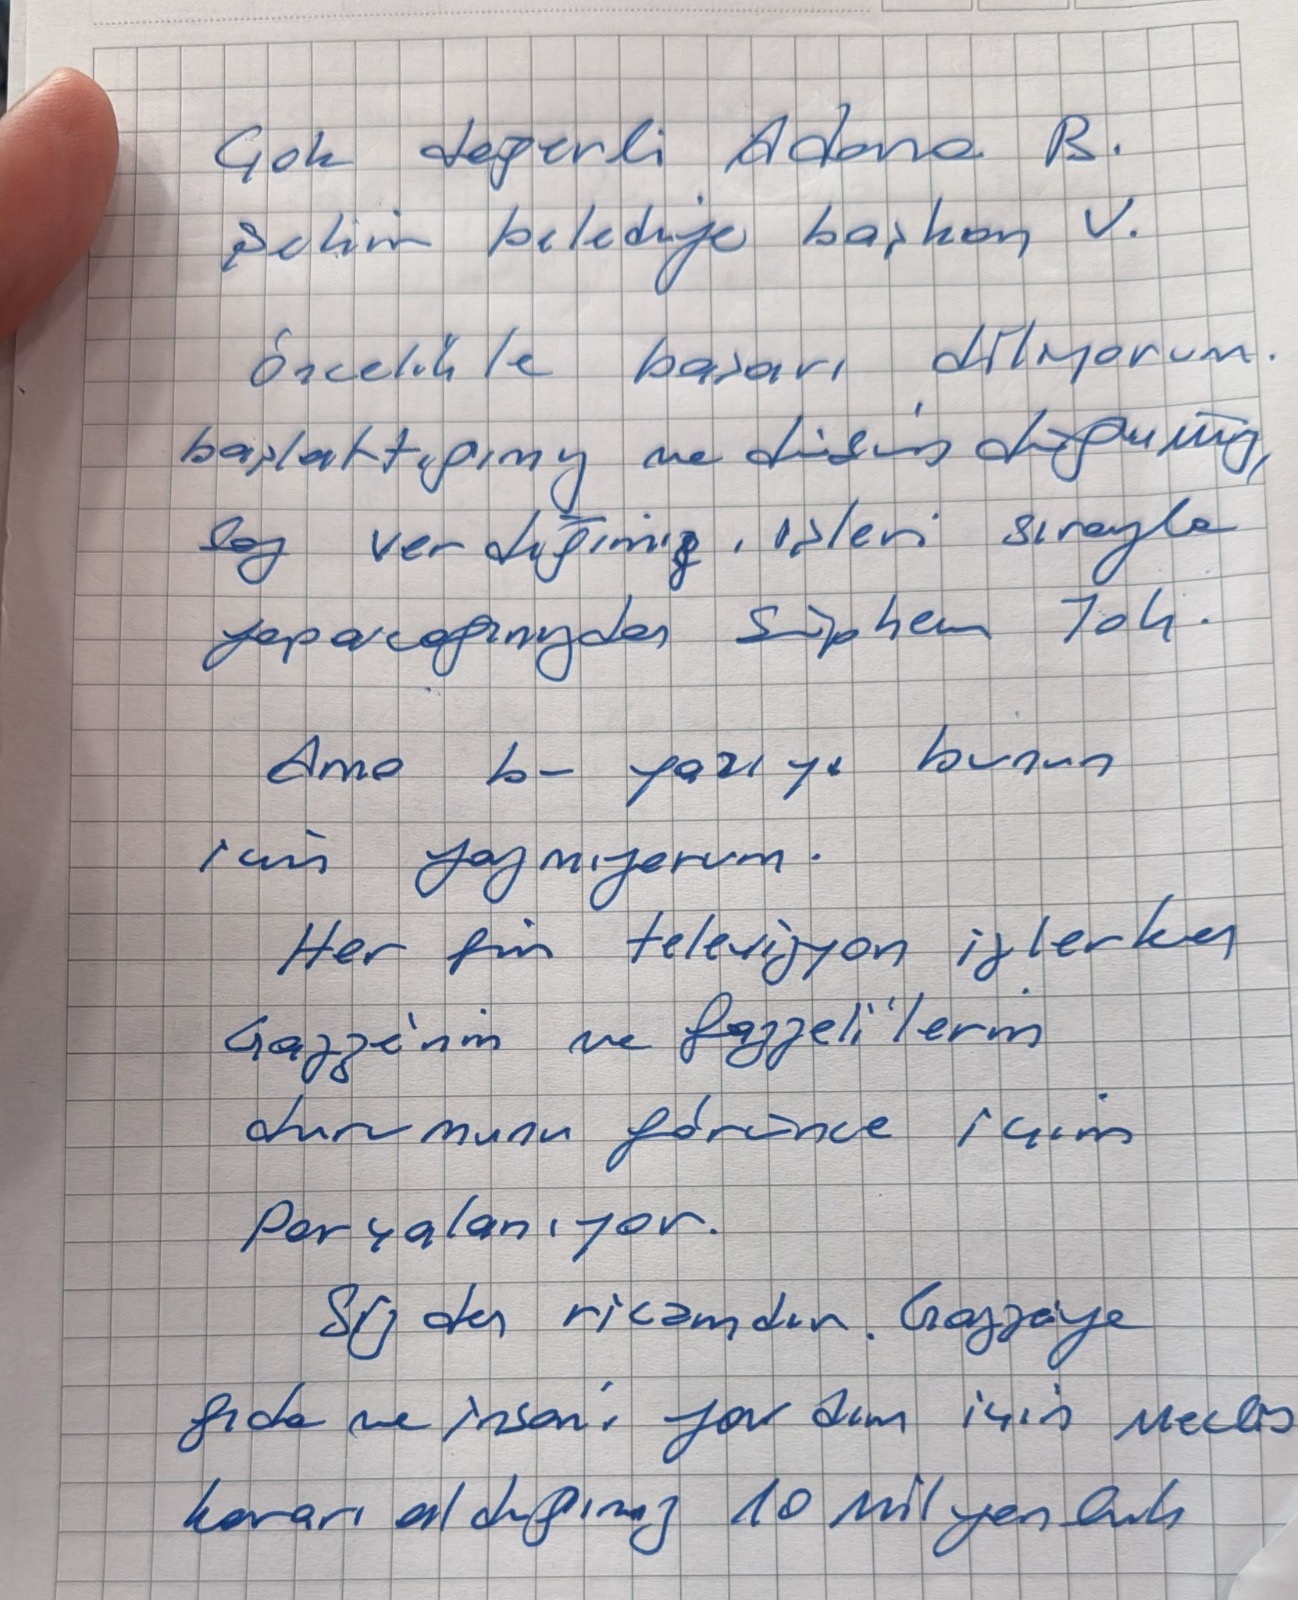 Çok değerli Adana B.
Şehir belediye başkan V.
Öncelikle başarı diliyorum.
başlattığınız ve düşündüğünüz,
söz verdiğiniz, işleri sırayla
yapacağınızdan şüphem yok.
Ama bu yazıyı bunun
için yazmıyorum.
Her gün televizyon izlerken
Gazze'nin ve Gazzeli'lerin
durumunu görünce içim
Parçalanıyor.
Sizden ricamdır. Gazzeye
gıda ve insani yardım için Meclis
kararı aldığınız 10 Milyonluk